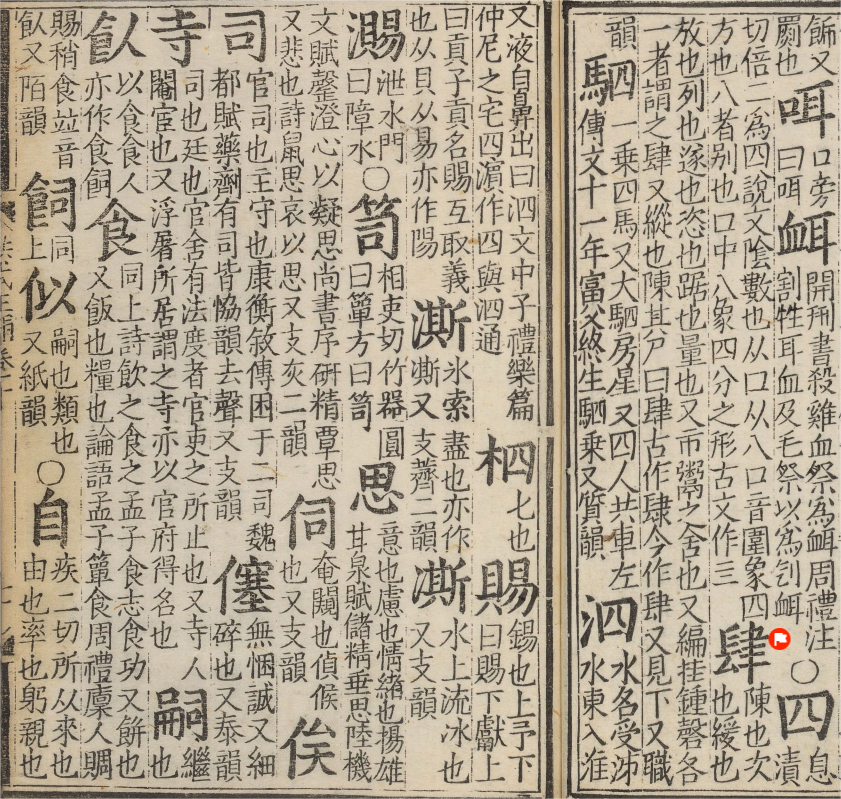 飾又罽也咡口旁曰咡衈開刑書殺雞血祭為衈周禮注割牲耳血及毛祭以為刉衈○四息漬
切倍二為四說文陰數也从口从八口音圍象四方也八者別也口中八象四分之形古文作亖肆陳也次也緩也
放也列也遂也恣也踞也量也又市鬻之舍也又編挂鍾磬各一者謂之肆又縱也陳其尸曰肆古作肆今作肆又見下又職
韻駟一乘四馬又大駟房星又四人共車左傳文十一年富父終生駟乘又質韻泗水名受泲水東入淮
又液自鼻出曰泗文中子禮樂篇仲尼之宅四濱作四與泗通柶匕也賜錫也上予下曰賜下獻上
曰貢子貢名賜互取義也从貝从易亦作澌氷索盡也亦作澌又支薺二韻澌水上流冰也又支韻
泄水門曰障水○笥相吏切竹器圓曰簞方曰笥思意也慮也情緒也揚雄甘泉賦儲精垂思陸機
文賦罄澄心以凝思尚書序研精覃思又悲也詩鼠思哀以思又支灰二韻伺奄闚也偵候也又支韻俟
司官司也主守也康衡敘傳困于二司魏都賦藥劑有司皆恊韻去聲又支韻僿無悃誠又細碎也又泰韻
寺司也廷也官舍有法度者官吏之所止也又寺人閹宦也又浮屠所居謂之寺亦以官府得名也嗣繼也
飤以食食人亦作食飼食同上詩飲之食之孟子食志食功又餅也又飯也糧也論語孟子簞食周禮廩人賙
賜稍食竝音飤又陌韻飼同上似嗣也類也又紙韻○自疾二切所从來也由也率也躬親也